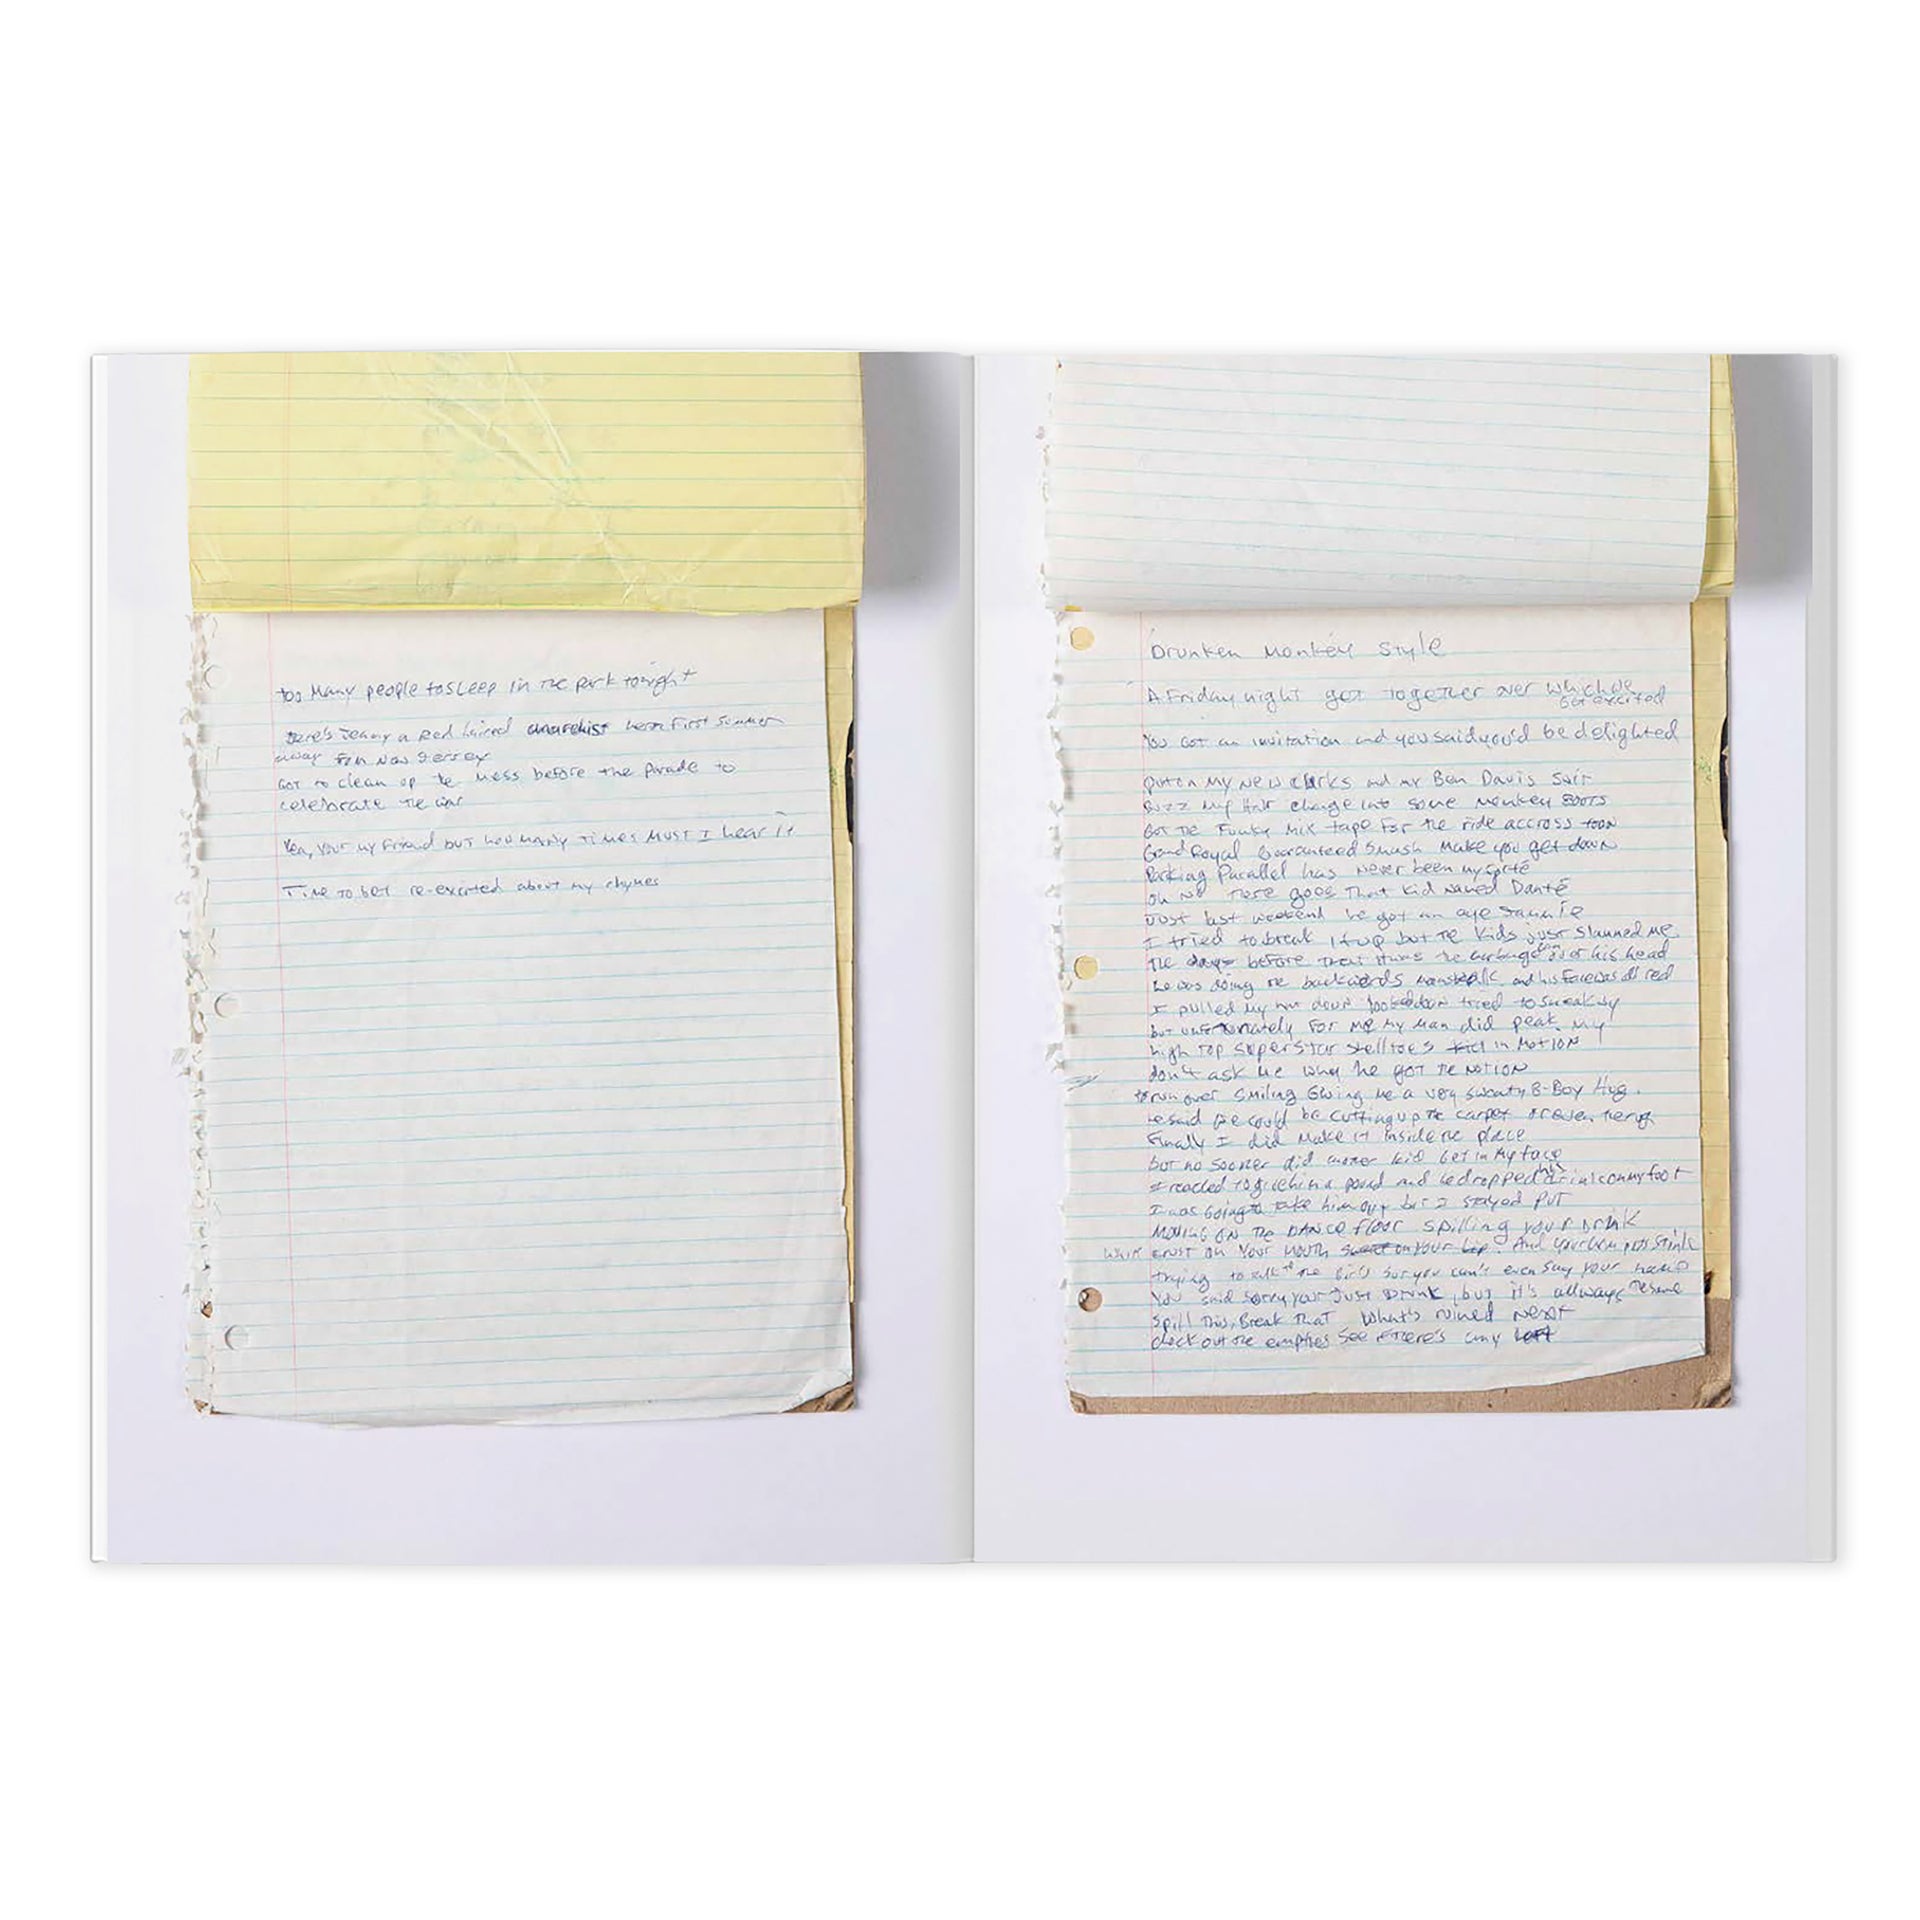 too Many people to sleep in the park tonight
there's Jenny a Red haired anarchist her first summer
away from New Jersey
Got to clean up the mess before the parade to
celebrate the war
Yea, your my friend but how many times must I hear it
Time to get re-excited about my rhymes
Drunken Monkey Style
A Friday night got together over which we
got excited
You got an invitation and you said you'd be delighted
put on My new clarks and my Ben Davis Suit
Buzz my hair change into some monkey boots
Got the Funky Mix tape For the ride accross town
Grand Royal Guaranteed Smash Make you get down
Parking Parallel has never been my forté
oh no there goes that kid named Danté
Just last weekend he got an eye jammie
I tried to break it up but the kids just slammed me
the days before that the garbage can over his head
he was doing the backwards moonwalk and his face was all red
I pulled my hat down looked down tried to sneak by
but unfortunately for me my man did peak my
high top superstar shelltoes in Motion
don't ask me why he got the notion
to run over smiling Giving me a very sweaty B-Boy Hug.
he said he could be cutting up the carpet or even the rug
Finally I did make it inside the place
but no sooner did another kid get in my face
I reached to give him a pound and he dropped his drink on my foot
I was going to take him out but I stayed put
Moving on the dance floor spilling your drink
White crust on your mouth sweat on your lip. And your stink
trying to talk to the girls but you can't even say your name
You said sorry your just drunk, but it's allways the same
Spill this, Break that what's ruined next
check out the empties see if there's any left